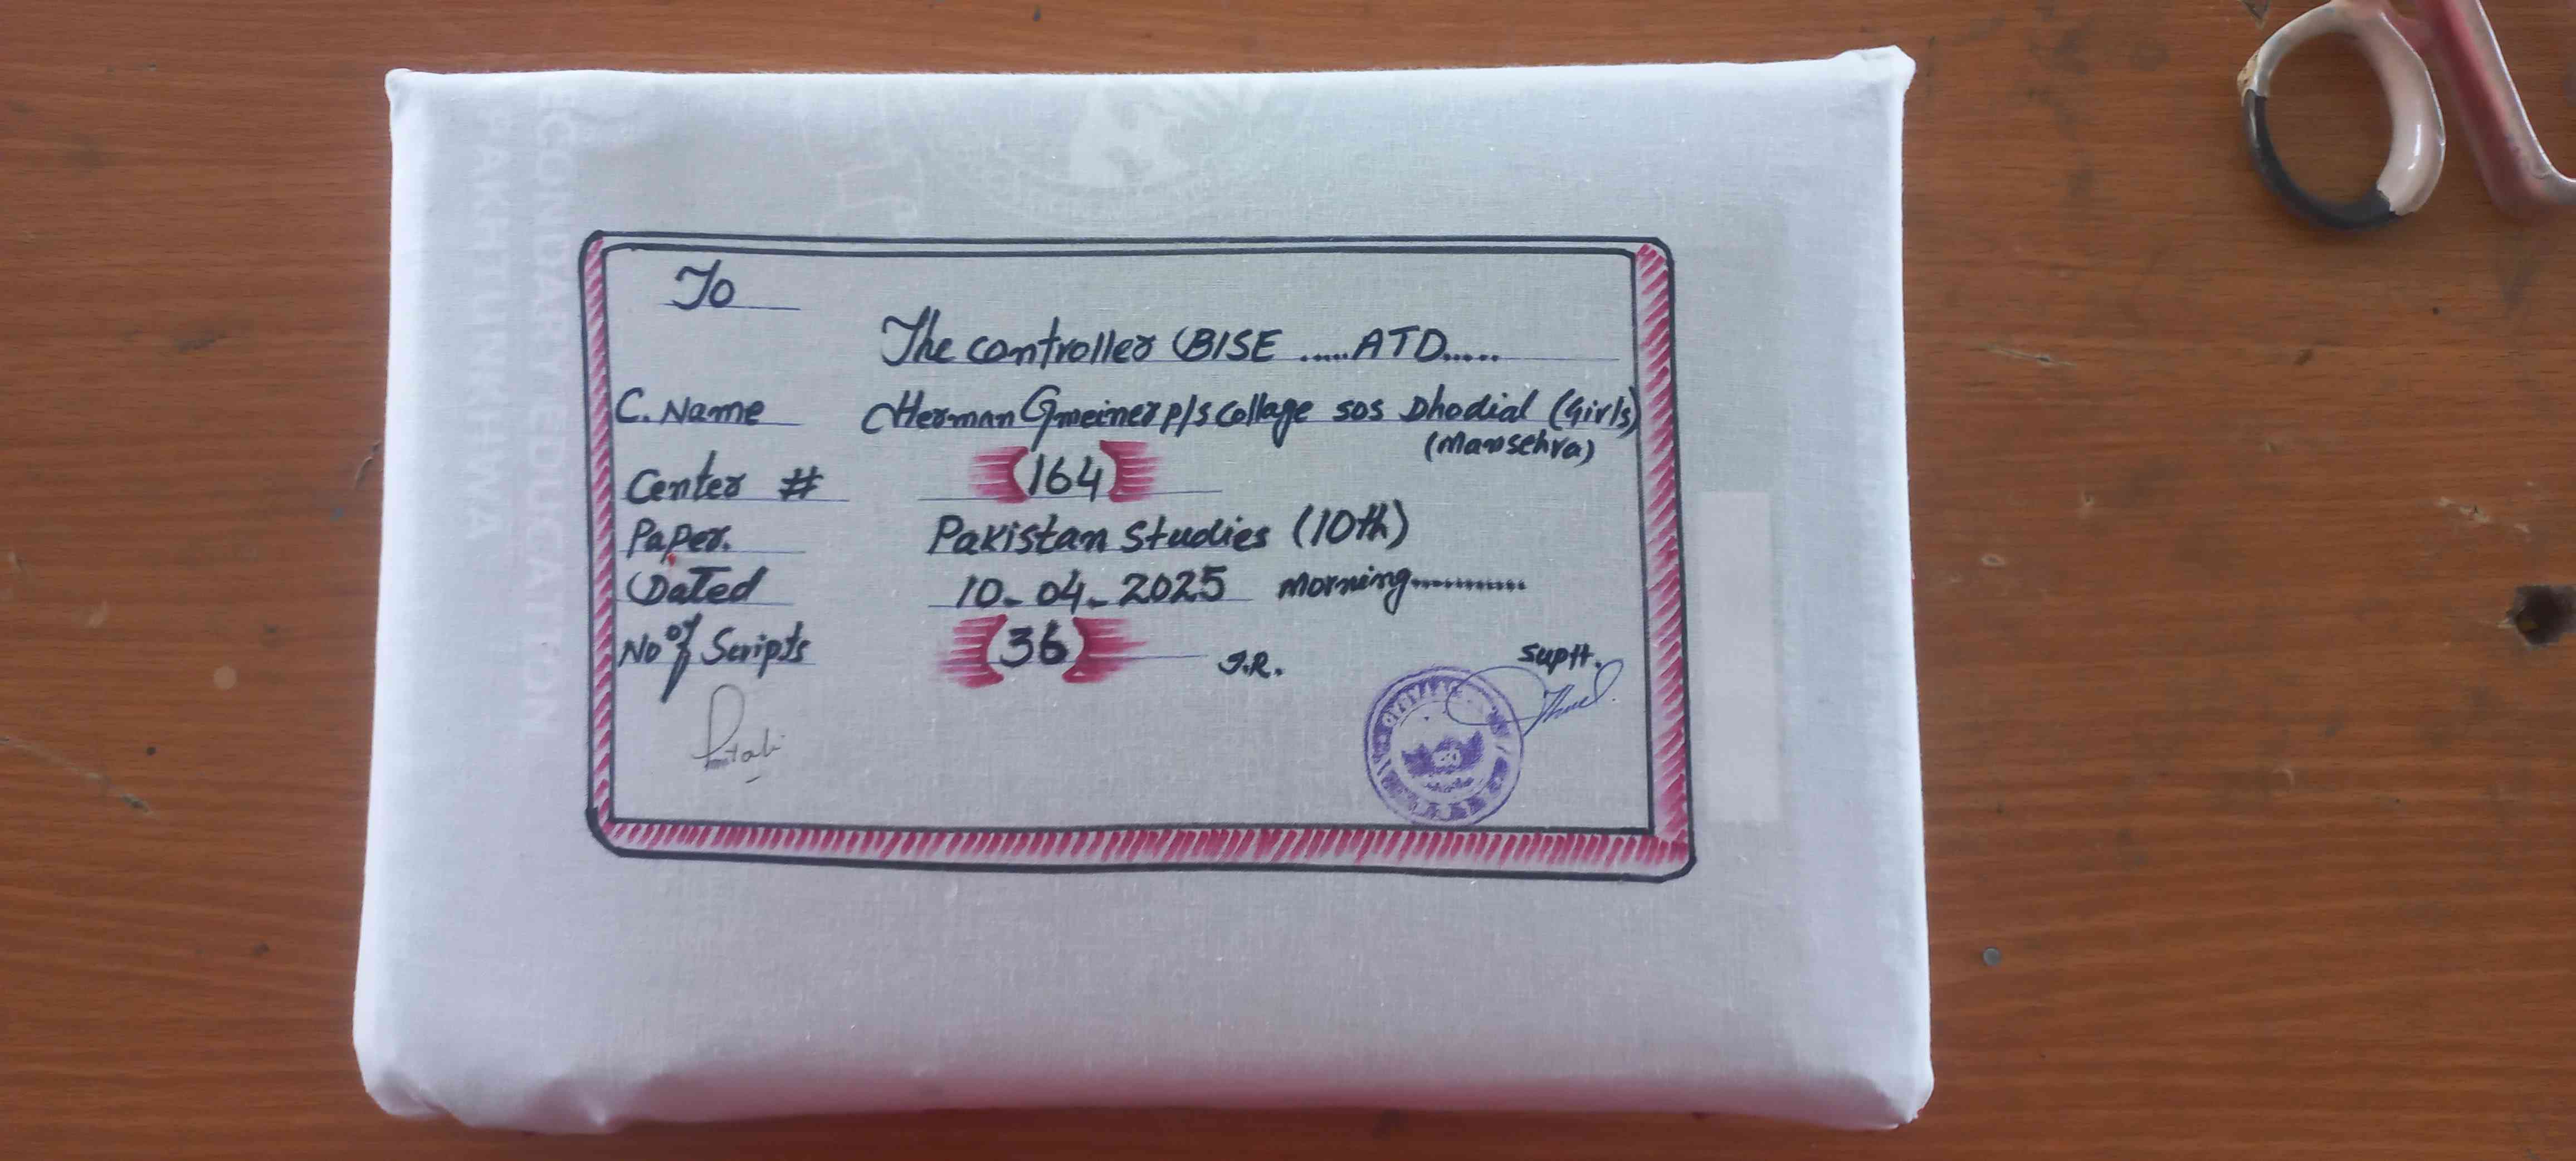 To
The controller BISE .....ATD.....
C. Name Herman Gmeiner p/s collage sos Dhodial (Girls)
(Mansehra)
Center # (164)
Paper. Pakistan Studies (10th)
Dated 10-04-2025 morning............
No of Scripts (36)
S.R. Suptt.
ECONDARY EDUCATION
PAKHTUNKHWA